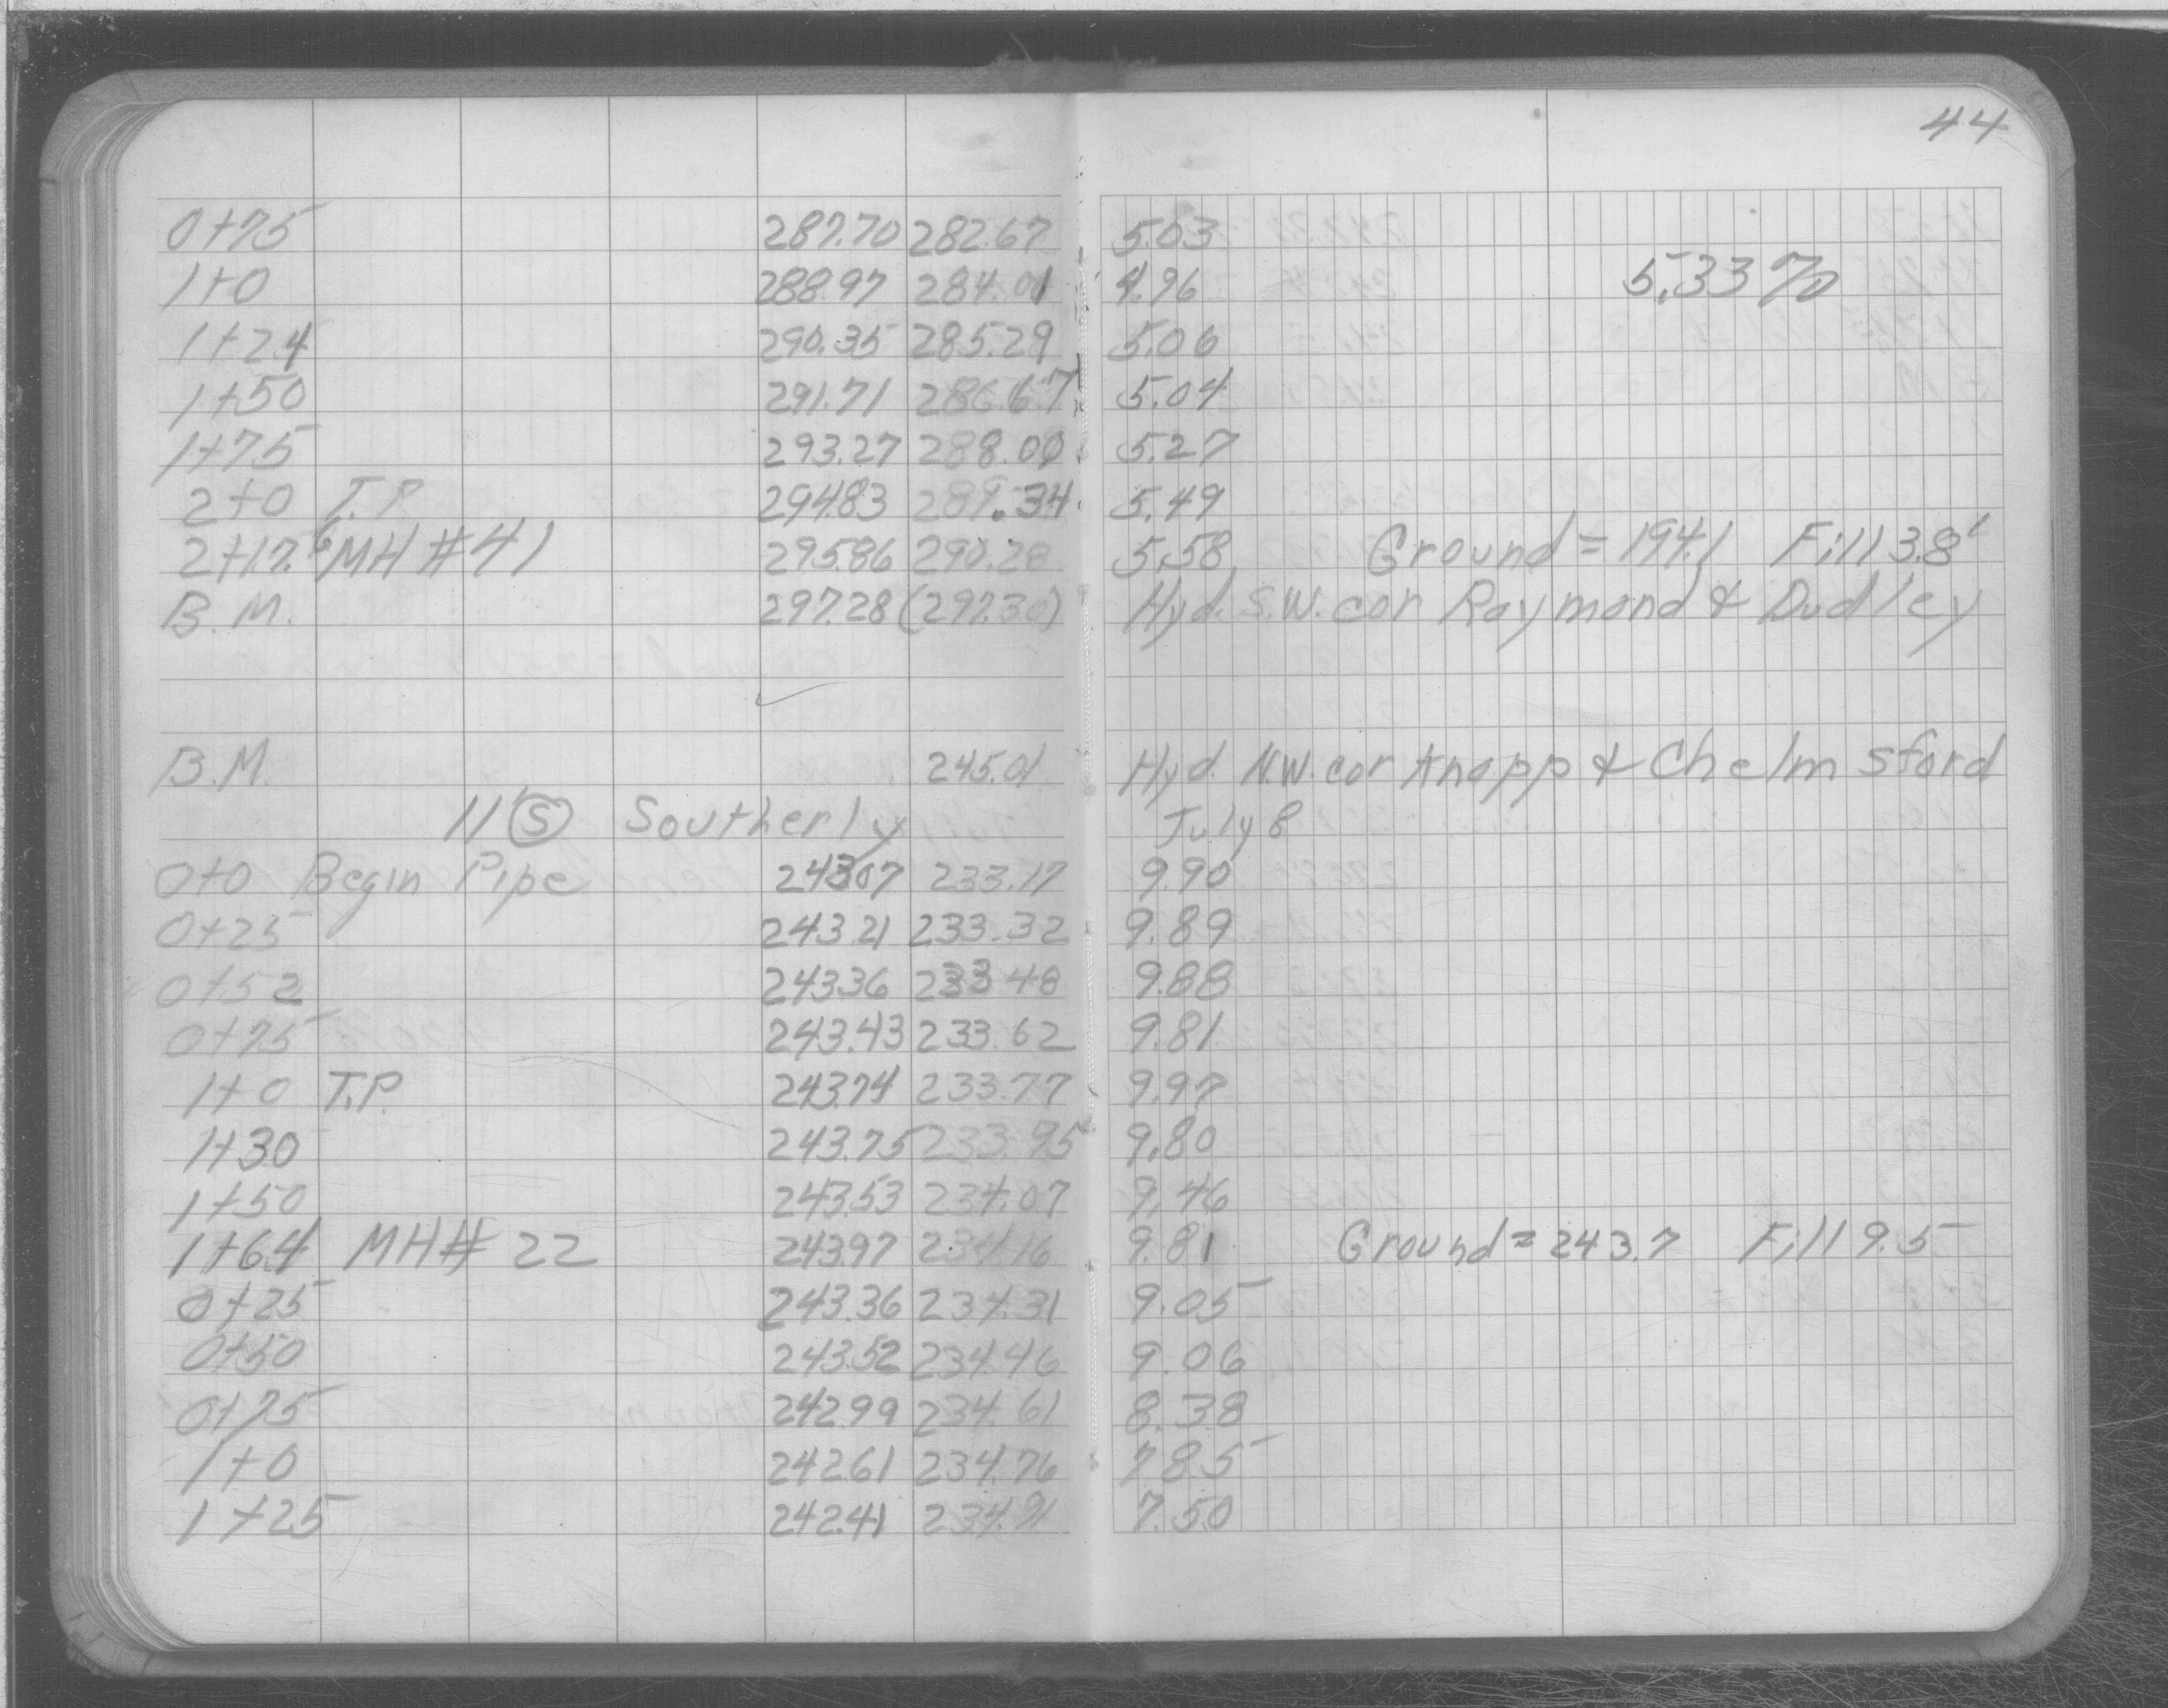 44
0+75 287.70 282.67 5.03
5.33%
1+0 288.97 284.01 4.96
1+24 290.35 285.29 5.06
1+50 291.71 286.67 5.04
1+75 293.27 288.00 5.27
2+0 T.P. 294.83 289.34 5.49
2+17.6 MH #41 295.86 290.28 5.58 Ground = 194.1 Fill 3.8'
B.M. 297.28 (297.30) Hyd. S.W. cor Raymond & Dudley
B.M. 245.01 Hyd. N.W. cor Knapp & Chelmsford
11 S Southerly July 8
0+0 Begin Pipe 243.07 233.17 9.90
0+25 243.21 233.32 9.89
0+52 243.36 233.48 9.88
0+75 243.43 233.62 9.81
1+0 T.P. 243.74 233.77 9.97
1+30 243.75 233.95 9.80
1+50 243.53 234.07 9.46
1+64 MH# 22 243.97 234.16 9.81 Ground = 243.7 Fill 9.5
0+25 243.36 234.31 9.05
0+50 243.52 234.46 9.06
0+75 242.99 234.61 8.38
1+0 242.61 234.76 7.85
1+25 242.41 234.91 7.50